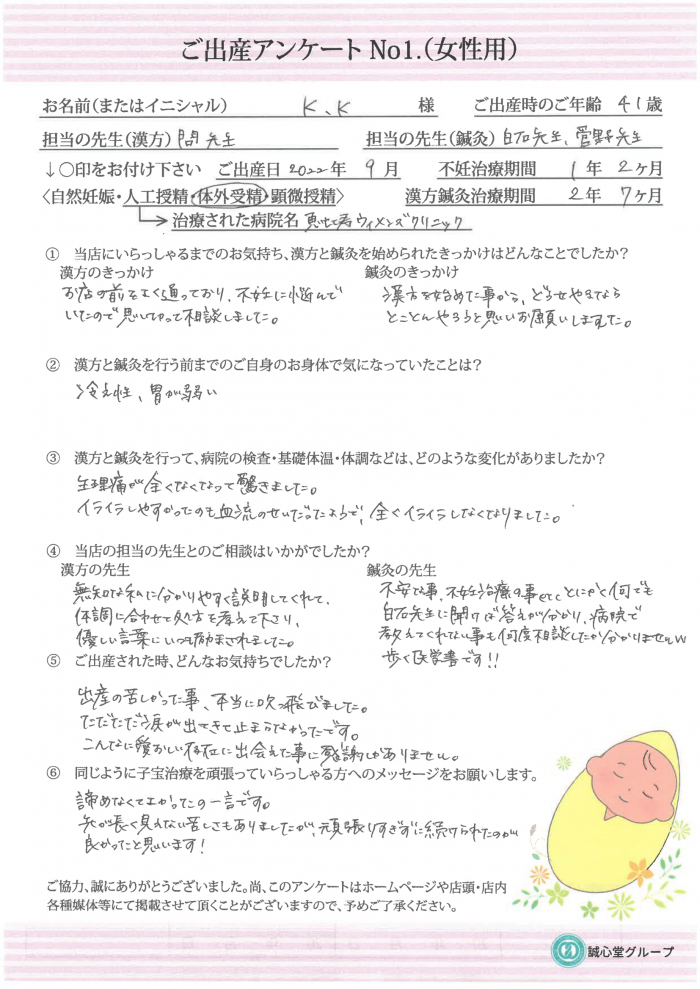 ご出産アンケート No1.(女性用)
お名前(またはイニシャル) K、K 様 ご出産時のご年齢 41歳
担当の先生(漢方) 問先生 担当の先生(鍼灸) 白石先生、菅野先生
↓〇印をお付け下さい ご出産日 2022年 9月 不妊治療期間 1年 2ヶ月
〈自然妊娠・人工授精・体外受精・顕微授精〉 漢方鍼灸治療期間 2年 7ヶ月
治療された病院名 恵比寿ウィメンズクリニック
① 当店にいらっしゃるまでのお気持ち、漢方と鍼灸を始められたきっかけはどんなことでしたか?
漢方のきっかけ 鍼灸のきっかけ
お店の前をよく通っており、不妊に悩んで 漢方を始めた事から、どうせやるなら
いたので思い切って相談しました。 とことんやろうと思いお願いしました。
② 漢方と鍼灸を行う前までのご自身のお身体で気になっていたことは?
冷え性、胃が弱い
③ 漢方と鍼灸を行って、病院の検査・基礎体温・体調などは、どのような変化がありましたか?
生理痛が全くなくなって驚きました。
イライラしやすかったのも血流のせいだったようで、全くイライラしなくなりました。
④ 当店の担当の先生とのご相談はいかがでしたか?
漢方の先生 鍼灸の先生
無知な私に分かりやすく説明してくれて、 不安な事、不妊治療の事etcとにかく何でも
体調に合わせて処方を考えて下さり、 白石先生に聞けば答えが分かり、病院で
優しい言葉にいつも励まされました。 教えてくれない事も何度相談したか分かりませんw
歩く医学書です!!
⑤ ご出産された時、どんなお気持ちでしたか?
出産の苦しかった事、本当に吹っ飛びました。
ただただ涙が出てきて止まらなかったです。
こんなに愛おしい存在に出会えた事に感謝しかありません。
⑥ 同じように子宝治療を頑張っていらっしゃる方へのメッセージをお願いします。
諦めなくてよかったの一言です。
先が長く見えない苦しさもありましたが、頑張りすぎずに続けられたのが
良かったと思います!
ご協力、誠にありがとうございました。尚、このアンケートはホームページや店頭・店内
各種媒体等にて掲載させて頂くことがございますので、予めご了承ください。
誠心堂グループ